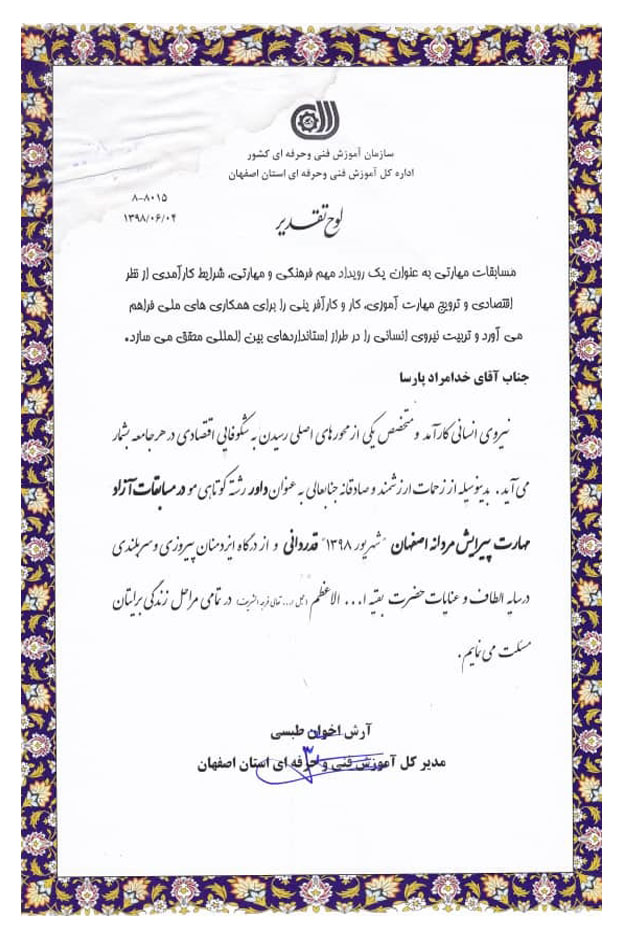 سازمان آموزش فنی وحرفه ای کشور
اداره کل آموزش فنی وحرفه ای استان اصفهان
۸-۸۰۱۵
۱۳۹۸/۰۶/۰۴
لوح تقدیر
مسابقات مهارتی به عنوان یک رویداد مهم فرهنگی و مهارتی، شرایط کارآمدی از نظر
اقتصادی و ترویج مهارت آموزی، کار و کارآفرینی را برای همکاری های ملی فراهم
می آورد و تربیت نیروی انسانی را در طراز استانداردهای بین المللی محقق می سازد.
جناب آقای خدامراد پارسا
نیروی انسانی کارآمد و متخصص یکی از محورهای اصلی رسیدن به شکوفایی اقتصادی در هر جامعه بشمار
می آید. بدینوسیله از زحمات ارزشمند و صادقانه جنابعالی به عنوان داور رشته کوتاهی مو در مسابقات آزاد
مهارت پیرایش مردانه اصفهان "شهریور ۱۳۹۸" قدردانی و از درگاه ایزدمنان پیروزی و سربلندی
در سایه الطاف و عنایات حضرت بقیه ا... الاعظم (عجل ا... تعالی فرجه الشریف) در تمامی مراحل زندگی برایتان
مسئلت می نمایم.
آرش اخوان طبسی
مدیر کل آموزش فنی وحرفه ای استان اصفهان